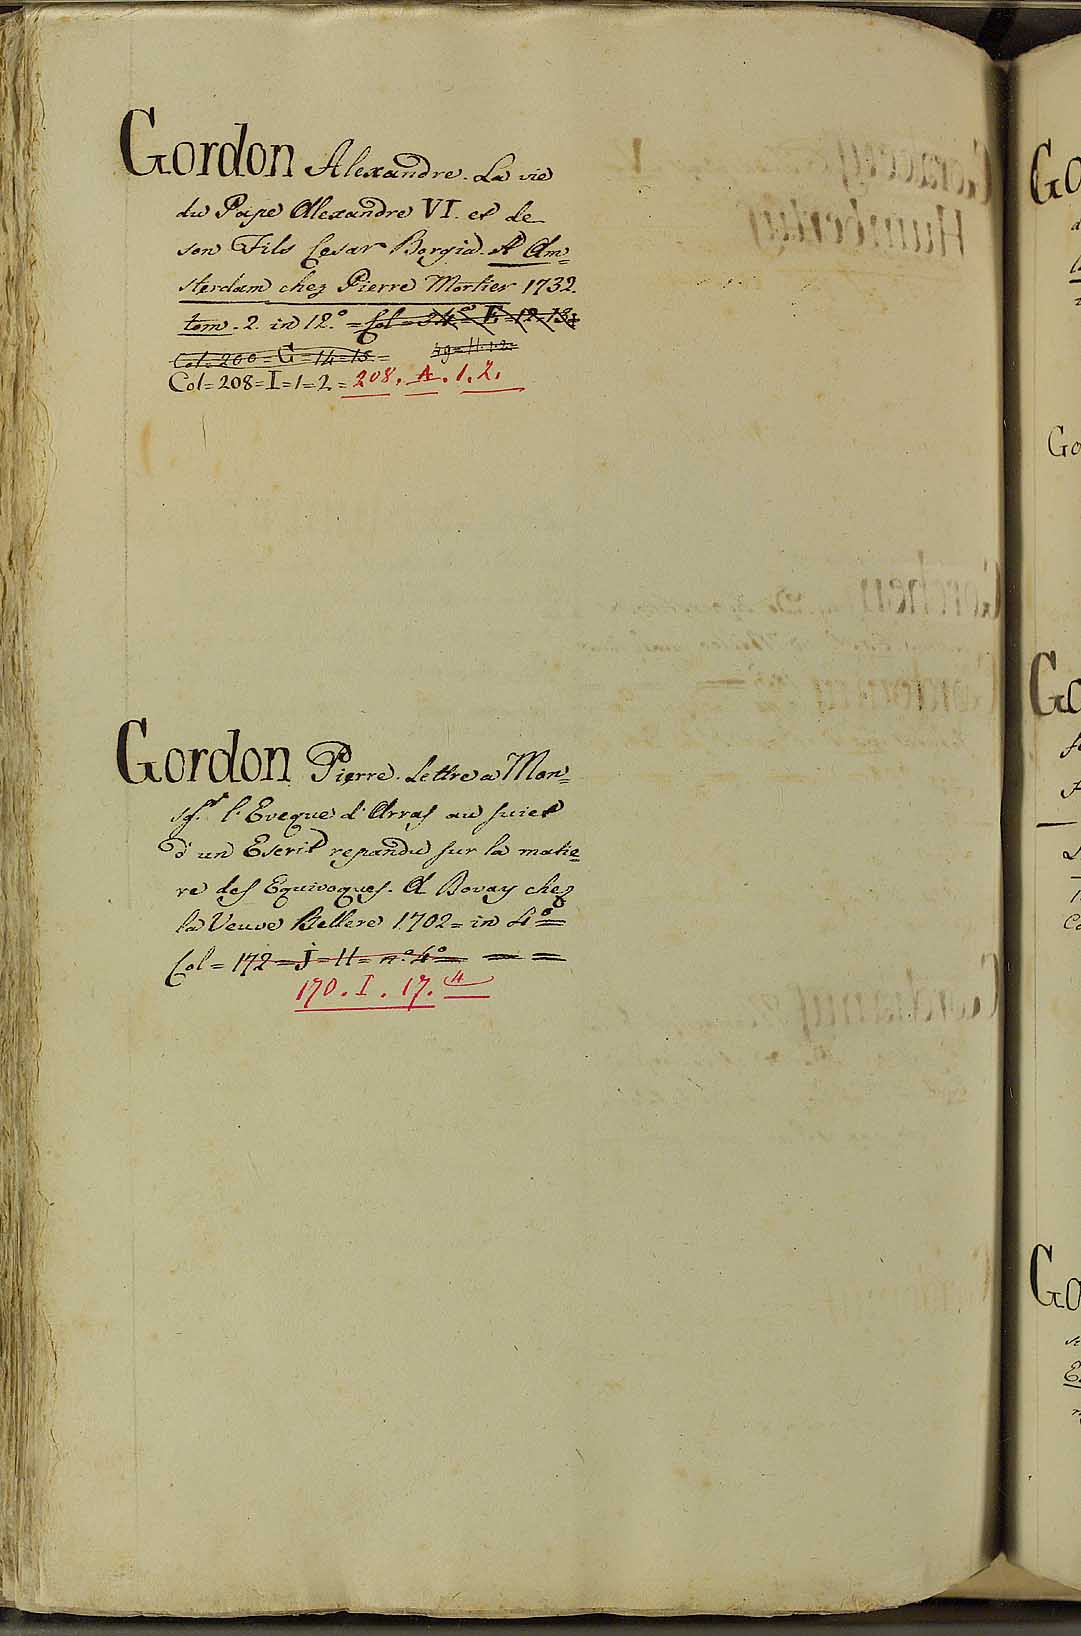 Gordon Alexandre. La vie
du Pape Alexandre VI. et de
son Fils Cesar Borgia. A Am=
sterdam chez Pierre Mortier 1732.
tom. 2. in 12.° = Col = 34.° E = 12=13=
Col. 200 = G = 14=15 =
Col = 208 = I = 1 = 2 = 208. A. 1. 2.
Gordon Pierre. Lettre a Mon=
sg.r l'Eveque d'Arras au suiet
d'un Escrit repandu sur la matie=
re des Equivoques. A Bovay chez
la Veuve Bellere 1702 = in 4° =
Col = 172 = j = 11 = n.° 4.° = = =
170. I. 17. 4
Humbertus
Go
Go
Go
Go